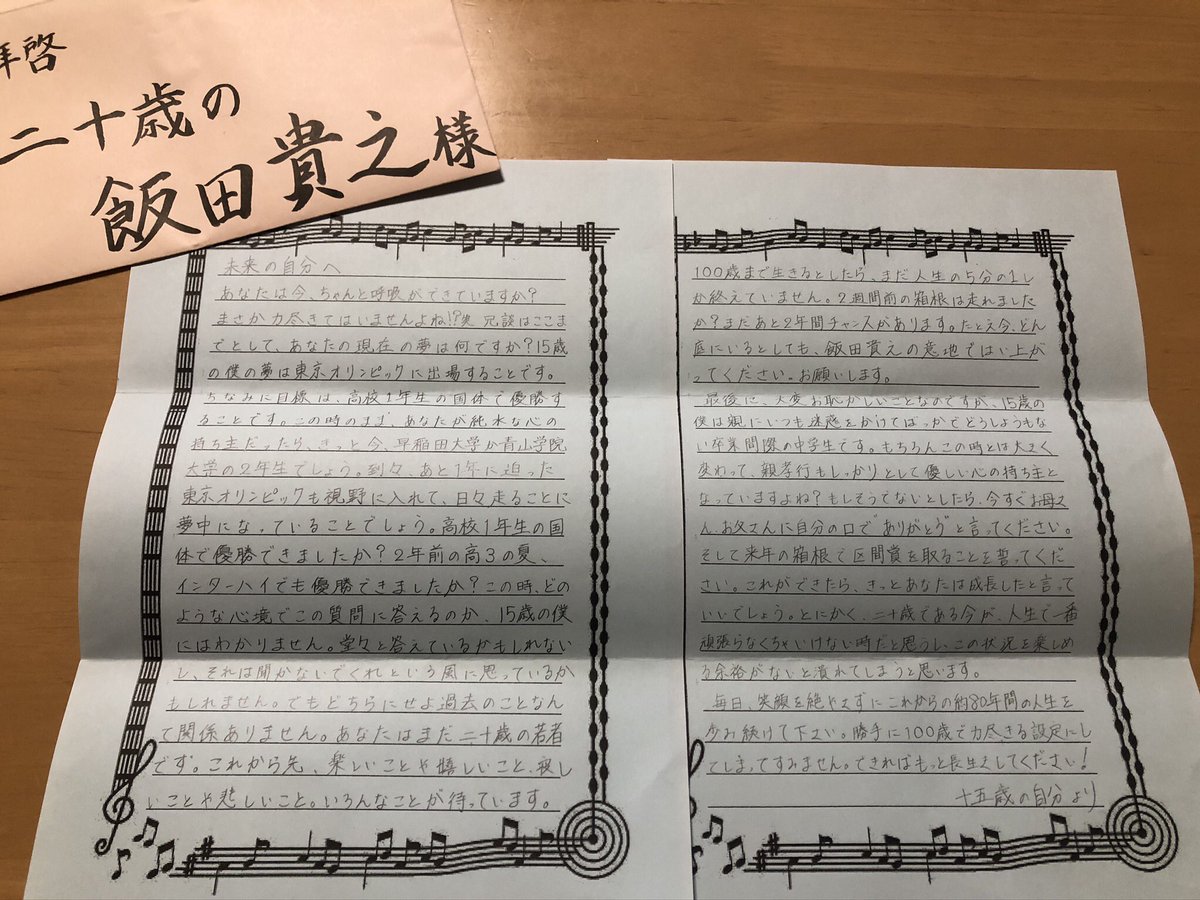 拝啓
二十歳の
飯田貴之様
未来の自分へ
あなたは今、ちゃんと呼吸ができていますか?
まさか力尽きてはいませんよね!?笑 冗談はここま
でとして、あなたの現在の夢は何ですか?15歳
の僕の夢は東京オリンピックに出場することです。
ちなみに目標は、高校1年生の国体で優勝す
ることです。この時のまま、あなたが純水な心の
持ち主だったら、きっと今、早稲田大学か青山学院
大学の2年生でしょう。到々、あと1年に迫った
東京オリンピックも視野に入れて、日々走ることに
夢中になっていることでしょう。高校1年生の国
体で優勝できましたか?2年前の高3の夏、
インターハイでも優勝できましたか?この時、どの
ような心境でこの質問に答えるのか、15歳の僕
にはわかりません。堂々と答えているかもしれない
し、それは聞かないでくれという風に思っているか
もしれません。でもどちらにせよ過去のことなん
て関係ありません。あなたはまだ二十歳の若者
です。これから先、楽しいことや嬉しいこと、寂し
いことや悲しいこと。いろんなことが待っています。
100歳まで生きるとしたら、まだ人生の5分の1し
か終えていません。2週間前の箱根は走れました
か?まだあと2年間チャンスがあります。たとえ今、どん
底にいるとしても、飯田貴之の意地ではい上が
ってください。お願いします。
最後に、大変お恥かしいことなのですが、15歳の
僕は親にいつも迷惑をかけてばっかでどうしようもな
い卒業間際の中学生です。もちろんこの時とは大きく
変わって、親孝行もしっかりとして優しい心の持ち主と
なっていますよね?もしそうでないとしたら、今すぐお母さ
ん、お父さんに自分の口で"ありがとう"と言ってください。
そして来年の箱根で区間賞を取ることを誓ってくだ
さい。これができたら、きっとあなたは成長したと言って
いいでしょう。とにかく、二十歳である今が、人生で一番
頑張らなくちゃいけない時だと思うし、この状況を楽しめ
る余裕がないと潰れてしまうと思います。
毎日、笑顔を絶やさずにこれからの約80年間の人生を
歩み続けて下さい。勝手に100歳で力尽きる設定にし
てしまってすみません。できればもっと長生きしてください!
十五歳の自分より